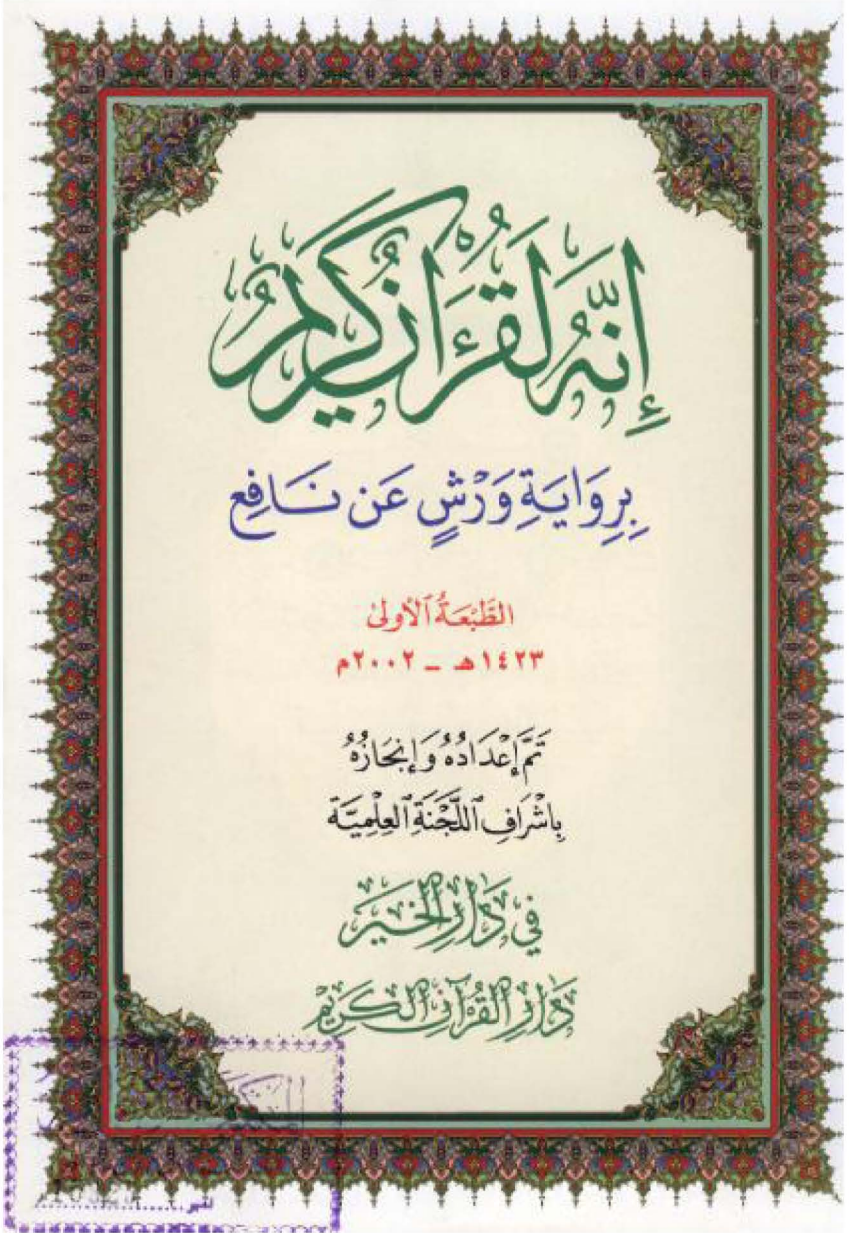 إِنَّهُ لَقُرْءَانٌ كَرِيمٌ
بِرِوَايَةِ وَرْشٍ عَن نَافِع
الطَّبْعَةُ ٱلْأُولىٰ
١٤٢٣هـ ـ ٢٠٠٢م
تَمَّ إِعْدَادُهُ وَإِنجَازُهُ
بِاشْرَافِ ٱللَّجْنَةِ ٱلعِلْمِيَّة
فِي دَارِ الخَيْر
دَارِ القُرْآنِ الكَرِيْم